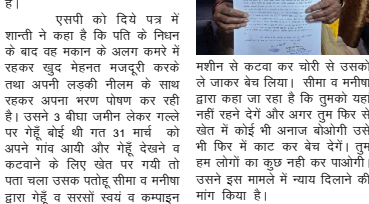 है।
एसपी को दिये पत्र में
शान्ती ने कहा है कि पति के निधन
के बाद वह मकान के अलग कमरे में
रहकर खुद मेहनत मजदूरी करके
तथा अपनी लड़की नीलम के साथ
रहकर अपना भरण पोषण कर रही
है। उसने 3 बीघा जमीन लेकर गल्ले
पर गेहूँ बोई थी गत 31 मार्च को
अपने गांव आयी और गेहूँ देखने व
कटवाने के लिए खेत पर गयी तो
पता चला उसक पतोहू सीमा व मनीषा
द्वारा गेहूँ व सरसों स्वयं व कम्पाइन
मशीन से कटवा कर चोरी से उसको
ले जाकर बेच लिया। सीमा व मनीषा
द्वारा कहा जा रहा है कि तुमको यहा
नहीं रहने देगें और अगर तुम फिर से
खेत में कोई भी अनाज बोओगी उसे
भी फिर में काट कर बेच देगें। तुम
हम लोगों का कुछ नही कर पाओगी।
उसने इस मामले में न्याय दिलाने की
मांग किया है।